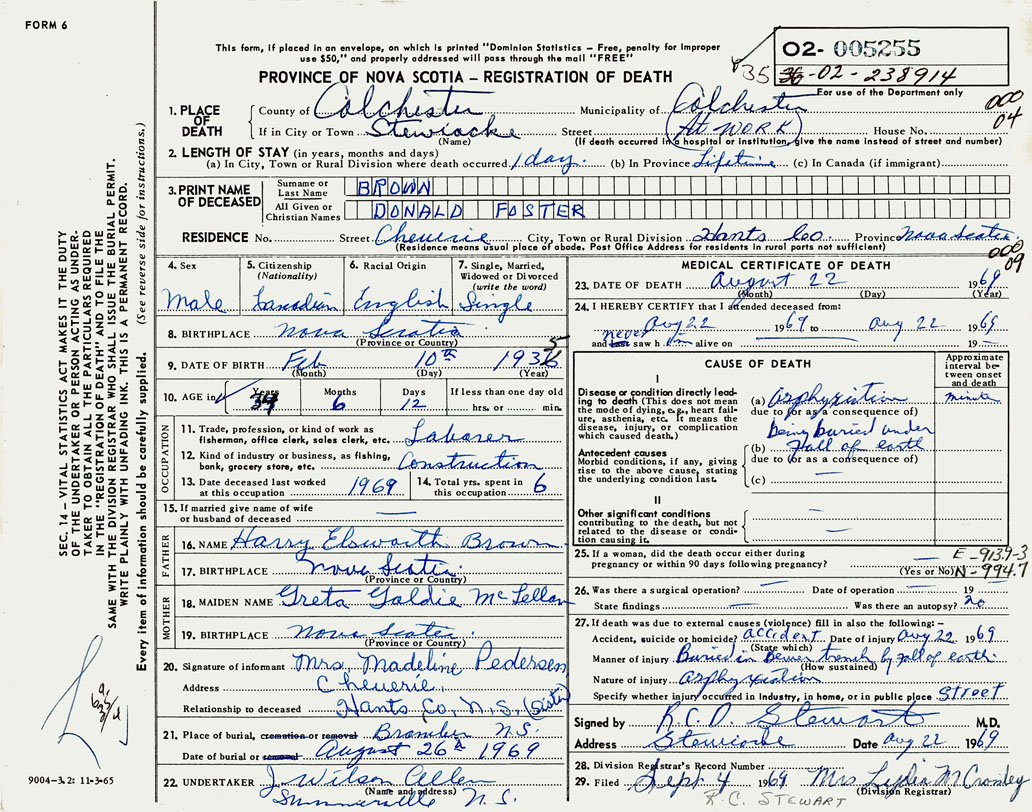 FORM 6
This form, if placed in an envelope, on which is printed "Dominion Statistics – Free, penalty for improper
use $50," and properly addressed will pass through the mail "FREE"
PROVINCE OF NOVA SCOTIA – REGISTRATION OF DEATH
02- 005255
35 36-02-238914
For use of the Department only
000
04
1. PLACE OF DEATH
County of Colchester Municipality of Colchester
If in City or Town Stewiacke Street (At WORK) House No.
(Name) (If death occurred in a hospital or institution, give the name instead of street and number)
2. LENGTH OF STAY (in years, months and days)
(a) In City, Town or Rural Division where death occurred 1 day. (b) In Province Lifetime (c) In Canada (if immigrant)
3. PRINT NAME OF DECEASED
Surname or Last Name BROWN
All Given or Christian Names DONALD FOSTER
RESIDENCE No. Street Cheverie City, Town or Rural Division Hants Co Province Nova Scotia
(Residence means usual place of abode. Post Office Address for residents in rural parts not sufficient)
000
09
4. Sex Male
5. Citizenship (Nationality) Canadian
6. Racial Origin English
7. Single, Married, Widowed or Divorced (write the word) Single
8. BIRTHPLACE Nova Scotia
(Province or Country)
9. DATE OF BIRTH Feb 10th 1935
(Month) (Day) (Year)
10. AGE in Years Months Days If less than one day old
34 6 12 hrs. or min.
OCCUPATION
11. Trade, profession, or kind of work as fisherman, office clerk, sales clerk, etc. Laborer
12. Kind of industry or business, as fishing, bank, grocery store, etc. Construction
13. Date deceased last worked at this occupation 1969
14. Total yrs. spent in this occupation 6
15. If married give name of wife or husband of deceased —
FATHER
16. NAME Harry Elsworth Brown
17. BIRTHPLACE Nova Scotia
(Province or Country)
MOTHER
18. MAIDEN NAME Greta Goldie McLellan
19. BIRTHPLACE Nova Scotia
(Province or Country)
20. Signature of informant Mrs. Madeline Pedersen
Address Cheverie,
Relationship to deceased Hants Co, N.S. (Sister)
21. Place of burial, cremation or removal N.S.
Date of burial or removal August 26th 1969
22. UNDERTAKER J. Wilson Allen
(Name and address)
Summerville N.S.
MEDICAL CERTIFICATE OF DEATH
23. DATE OF DEATH August 22 1969
(Month) (Day) (Year)
24. I HEREBY CERTIFY that I attended deceased from:
Aug 22 1969 to Aug 22 1969
and last never saw him alive on — 19—
CAUSE OF DEATH
Approximate interval between onset and death
I
Disease or condition directly leading to death (This does not mean the mode of dying, e.g., heart failure, asthenia, etc. It means the disease, injury, or complication which caused death.)
(a) asphyxiation minutes
due to (or as a consequence of)
being buried under
(b) Fall of earth
due to (or as a consequence of)
(c) —
Antecedent causes
Morbid conditions, if any, giving rise to the above cause, stating the underlying condition last.
II
Other significant conditions
contributing to the death, but not related to the disease or condition causing it.
25. If a woman, did the death occur either during pregnancy or within 90 days following pregnancy? —
(Yes or No)
E-913.9-3
N-994.7
26. Was there a surgical operation? — Date of operation — 19
State findings — Was there an autopsy? no
27. If death was due to external causes (violence) fill in also the following:–
Accident, suicide or homicide? accident Date of injury Aug 22 1969
(State which)
Manner of injury Buried in sewer trench by fall of earth.
(How sustained)
Nature of injury asphyxiation
Specify whether injury occurred in Industry, in home, or in public place Street
Signed by R.C.D. Stewart M.D.
Address Stewiacke Date Aug 22 1969
28. Division Registrar's Record Number
29. Filed Sept 4 1969 Mrs Lydia M Crowley
(Division Registrar)
R.C. STEWART
SEC. 14 – VITAL STATISTICS ACT MAKES IT THE DUTY
OF THE UNDERTAKER OR PERSON ACTING AS UNDER-
TAKER TO OBTAIN ALL THE PARTICULARS REQUIRED
IN THE "REGISTRATION OF DEATH" AND TO FILE THE
SAME WITH THE DIVISION REGISTRAR WHO SHALL ISSUE THE BURIAL PERMIT.
WRITE PLAINLY WITH UNFADING INK. THIS IS A PERMANENT RECORD.
Every item of information should be carefully supplied. (See reverse side for instructions.)
9004-3.2: 11-3-65